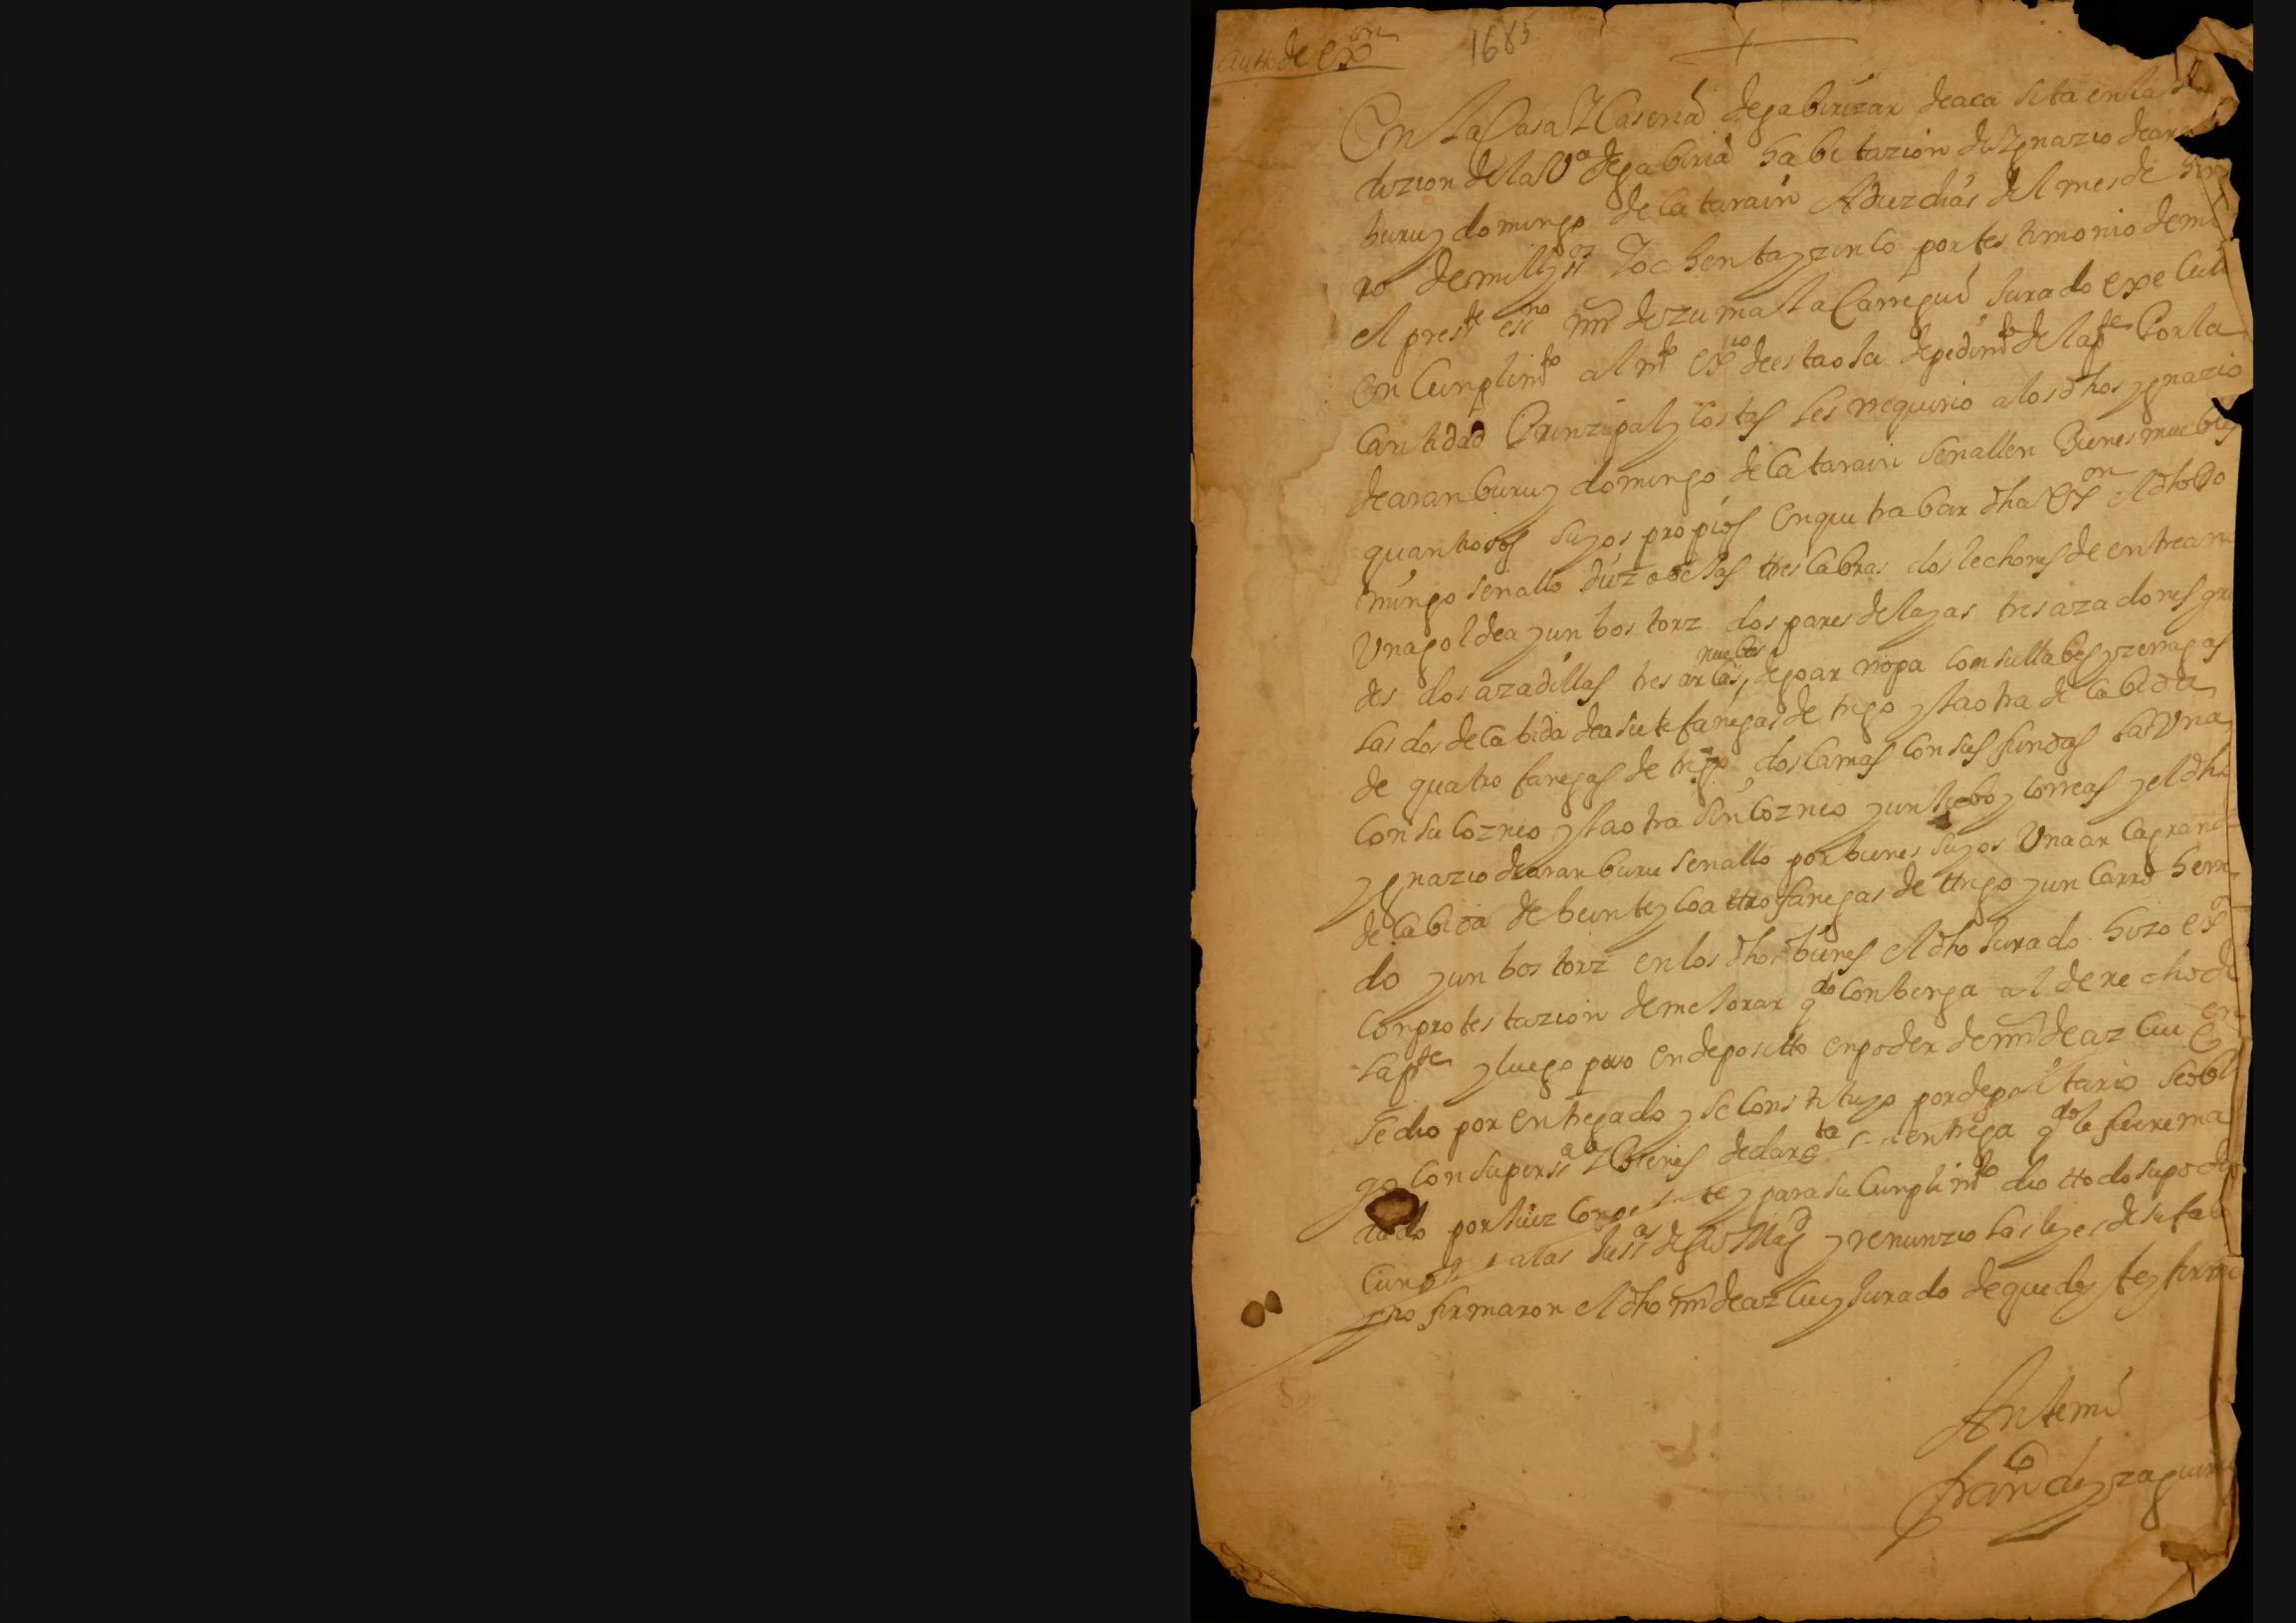 auto de exon
1685
En la Casa y Caseria de gabirizar de aca sita en la
dizion de la Va de gabiria habitazion de Ygnazio de aran
buru y domingo de Catarain A diez dias del mes de hene
ro de mill y sos y ochenta y zinco por testimonio de mi
el preste essno mrn de zumalaCarregui Jurado executor
en Cunplimto al mdo exvo de esta osa de pedimto de la pte Por la
Cantidad Prinzipal y costas les rrequirio a los dhos ygnazio
de aranburu y domingo de Catarain senallen Bienes muebles
quantiosos suyos propios en que trabar dha exon el dho Do
mingo senallo diez obejas tres Cabras dos lechones de entrean
Una goldea y un bostorz dos pares de layas tres azadones gran
des dos azadillas tres arcas nuebas de goar rropa con sus llabes y zerrajas
las dos de cabida de a siete fanegas de trigo y la otra de cabida
de quatro fanegas de trigo dos camas con sus fundas la Una
con su coznio y la otra sin coznio y un y correas y el dho
ygnazio de aranburu senallo por bienes suyos Una arca grande
de Cabida de beinte y coattro fanegas de ttrigo y un Carro herra
do y un bostorz en los dhos bienes el dho Jurado hizo exon
con protestazion de mejorar qdo conbenga al derecho de
la pte y luego puso en deposito en poder de mrn de azcue
se dio por entregado y se constituyo por depositario se obli
go con su persa y Bienes de dar qta entrega qdo le fuere man
dado por Juez conpe y para su cunplimto dio ttodo su poder
cunpl a las Jusas de su Magd y renunzio las leyes de su fabor
y no firmaron el dho mrn de azcue y Jurado de que doy fe y firme
Ante mi
Franco de yzaguirre